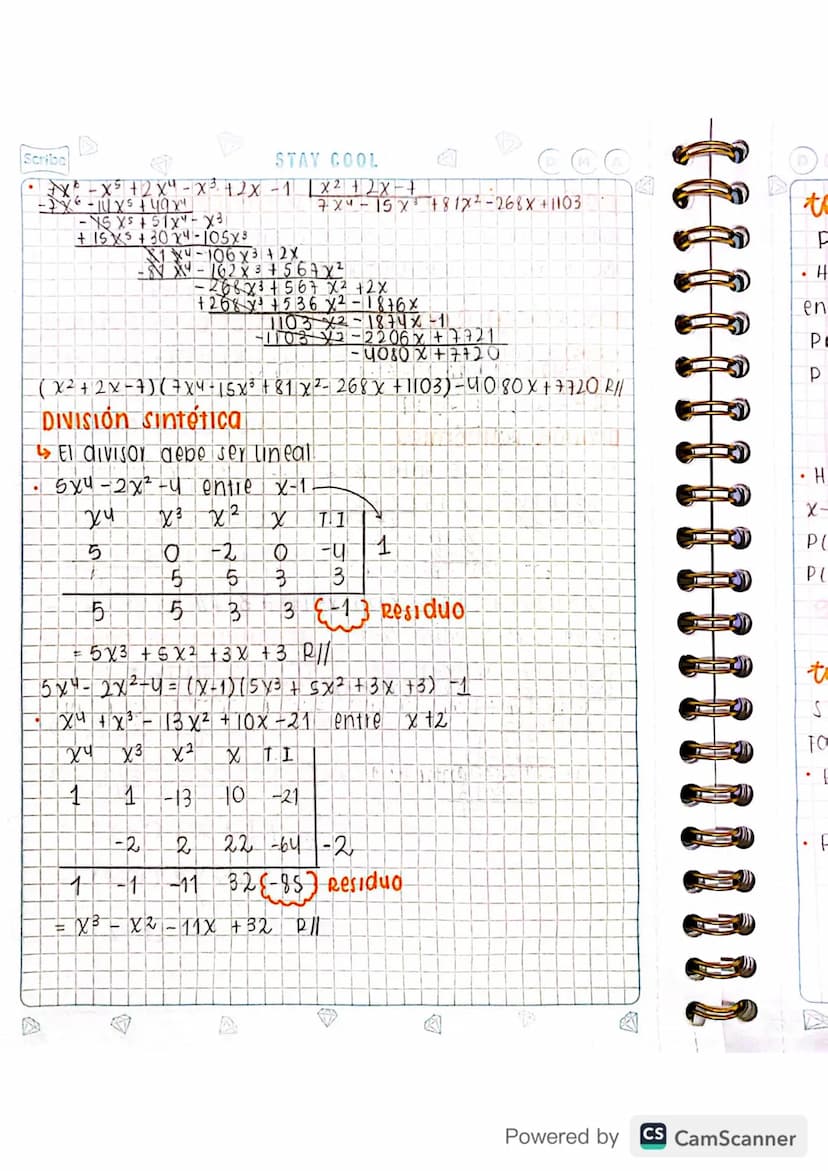 Scribe
STAY COOL
D M A
D
• 7x⁶ - x⁵ + 2x⁴ - x³ + 2x - 1 | x² + 2x - 7
-7x⁶ - 14x⁵ + 49x⁴ 7x⁴ - 15x³ + 81x² - 268x + 1103
- 15x⁵ + 51x⁴ - x³
+ 15x⁵ + 30x⁴ - 105x³
81x⁴ - 106x³ + 2x
-81x⁴ - 162x³ + 567x²
- 268x³ + 567x² + 2x
+ 268x³ + 536x² - 1876x
1103x² - 1874x - 1
- 1103x² - 2206x + 7721
- 4080x + 7720
(x² + 2x - 7)(7x⁴ - 15x³ + 81x² - 268x + 1103) - 4080x + 7720 R//
DIVISIÓN sintética
↳ El divisor debe ser lineal
• 5x⁴ - 2x² - 4 entre x - 1
x⁴ x³ x² x T.I
5 0 -2 0 -4 | 1
5 5 3 3
5 5 3 3 {-1} Residuo
= 5x³ + 5x² + 3x + 3 R//
5x⁴ - 2x² - 4 = (x-1)(5x³ + 5x² + 3x + 3) - 1
• x⁴ + x³ - 13x² + 10x - 21 entre x + 2
x⁴ x³ x² x T.I
1 1 -13 10 -21
-2 2 22 -64 | -2
1 -1 -11 32 {-85} Residuo
= x³ - x² - 11x + 32 R//
• H
en
P
• H
x-
P(
P(
S
Powered by CS CamScanner